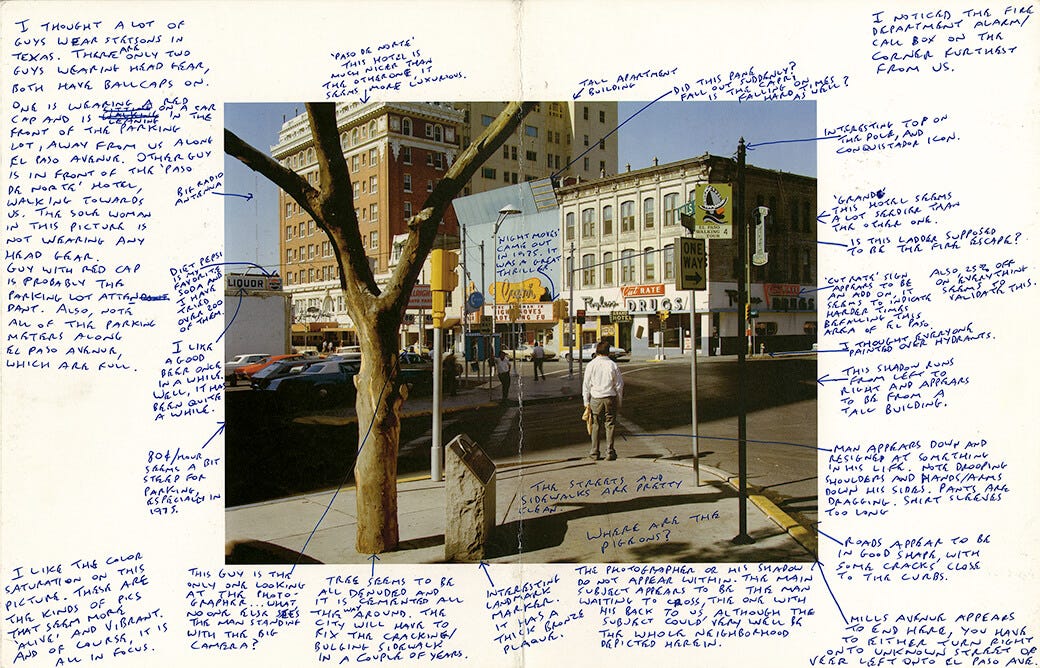 I THOUGHT A LOT OF
GUYS WEAR STETSONS IN
TEXAS. THERE ARE ONLY TWO
GUYS WEARING HEAD GEAR,
BOTH HAVE BALLCAPS ON.
ONE IS WEARING A RED
CAP AND IS ON A CAR IN THE
FRONT OF THE PARKING
LOT, AWAY FROM US ALONG
EL PASO AVENUE. OTHER GUY
IS IN FRONT OF THE 'PASO
DE NORTE' HOTEL,
WALKING TOWARDS
US. THE SOLE WOMAN
IN THIS PICTURE IS
NOT WEARING ANY
HEAD GEAR.
GUY WITH RED CAP
IS PROBABLY THE
PARKING LOT ATTENDANT.
ALSO, NOTE
ALL OF THE PARKING
METERS ALONG
EL PASO AVENUE,
WHICH ARE FULL.
'PASO DE NORTE'
THIS HOTEL IS
MUCH NICER THAN
THE OTHER ONE, IT
SEEMS MORE LUXURIOUS.
TALL APARTMENT
BUILDING
DID THIS PANE
FALL OUT SUDDENLY?
IS THE 'CAPRI'
FALLING ON TIMES
HARD AS WELL?
I NOTICED THE FIRE
DEPARTMENT ALARM/
CALL BOX ON THE
CORNER FURTHEST
FROM US.
INTERESTING TOP ON
THE POLE, AND
CONQUISTADOR ICON.
BIG RADIO
ANTENNA
'GRAND'
THIS HOTEL SEEMS
A LOT SEEDIER THAN
THE OTHER ONE.
IS THIS LADDER SUPPOSED
TO BE THE FIRE ESCAPE?
'NIGHT MOVES'
CAME OUT
IN 1975. IT
WAS A GREAT
THRILLER.
DIET PEPSI
IS MY
FAVORITE
SODA AND
I HAVE
TRIED
OVER 200
OF THEM.
'CUT RATE' SIGN
APPEARS TO BE
AN ADD ON, IT
SEEMS TO INDICATE
HARDER TIMES
BEFALLING THIS
AREA OF EL PASO.
ALSO, 25% OFF
ON EVERYTHING
SEEMS TO
VALIDATE THIS.
I THOUGHT EVERYONE
PAINTED OVER HYDRANTS.
I LIKE
A GOOD
BEER ONCE
IN A WHILE.
WELL, IT HAS
BEEN QUITE
A WHILE.
THIS SHADOW RUNS
FROM LEFT TO
RIGHT AND APPEARS
TO BE FROM A
TALL BUILDING.
LIQUOR
EL PASO
WALKING
TOUR
4
ONE
WAY
Cut RATE
DRUGS
80¢/HOUR
SEEMS A BIT
STEEP FOR
PARKING,
ESPECIALLY IN
1975.
MAN APPEARS DOWN AND
RESIGNED AT SOMETHING
IN HIS LIFE. NOTE DROOPING
SHOULDERS AND HANDS/ARMS
DOWN HIS SIDES. PANTS ARE
DRAGGING. SHIRT SLEEVES
TOO LONG
THE STREETS AND
SIDEWALKS ARE PRETTY
CLEAN.
WHERE ARE THE
PIGEONS?
ROADS APPEAR TO BE
IN GOOD SHAPE, WITH
SOME CRACKS CLOSE
TO THE CURBS.
I LIKE THE COLOR
SATURATION ON THIS
PICTURE. THESE ARE
THE KINDS OF PICS
THAT SEEM MORE
'ALIVE', AND VIBRANT.
AND OF COURSE, IT IS
ALL IN FOCUS.
THIS GUY IS THE
ONLY ONE LOOKING
AT THE PHOTO-
GRAPHER...WHAT,
NO ONE ELSE SEES
THE MAN STANDING
WITH THE BIG
CAMERA?
TREE SEEMS TO BE
ALL DENUDED AND
IT IS CEMENTED ALL
THE WAY AROUND. THE
CITY WILL HAVE TO
FIX THE CRACKING/
BULGING SIDEWALK
IN A COUPLE OF YEARS.
INTERESTING
LANDMARK
MARKER.
IT HAS A
THICK BRONZE
PLAQUE.
THE PHOTOGRAPHER OR HIS SHADOW
DO NOT APPEAR WITHIN. THE MAIN
SUBJECT APPEARS TO BE THE MAN
WAITING TO CROSS, THE ONE WITH
HIS BACK TO US, ALTHOUGH THE
SUBJECT COULD VERY WELL BE
THE WHOLE NEIGHBORHOOD
DEPICTED HEREIN.
MILLS AVENUE APPEARS
TO END HERE, YOU HAVE
TO EITHER TURN RIGHT
ONTO UNKNOWN STREET OR
VEER LEFT ONTO EL PASO AVE.